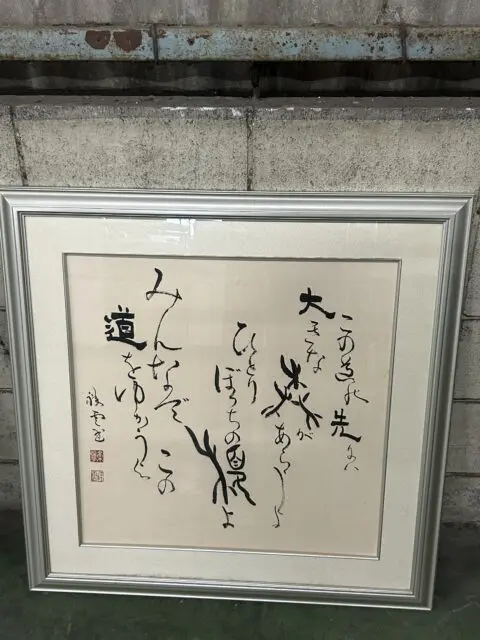 この道の先には
大きな森があろうよ
ひとり
ぼっちの榎よ
みんなで この
道をゆかうよ